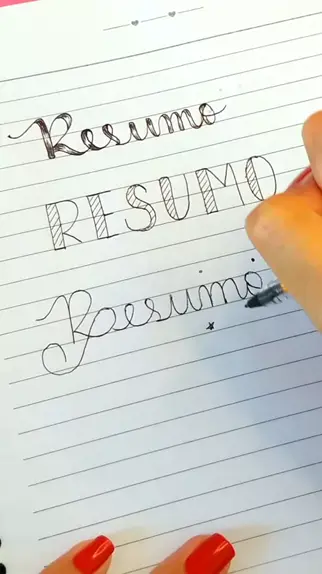 Resumo
RESUMO
Resumo